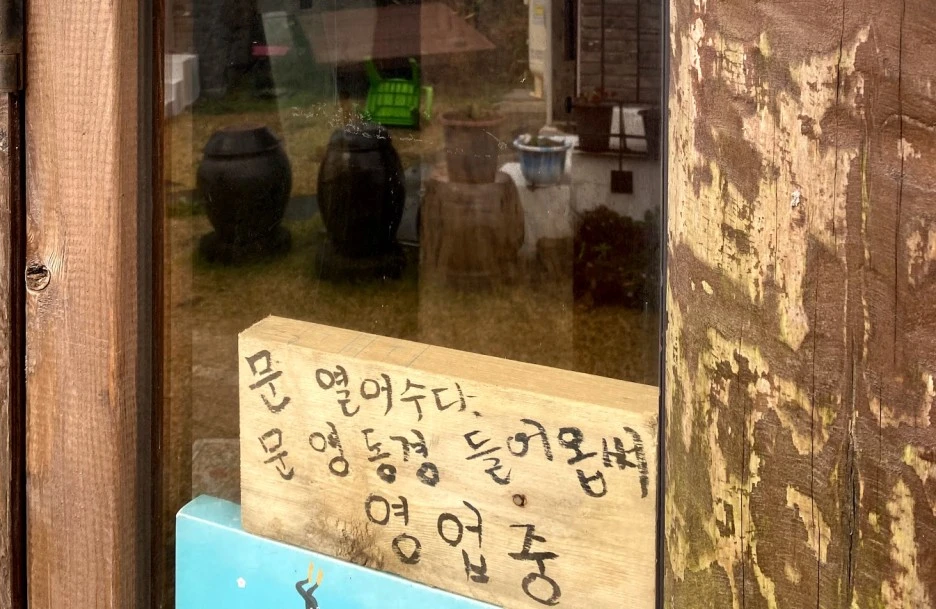 문 열어수다.
문 영동경 들어옵써
영업중